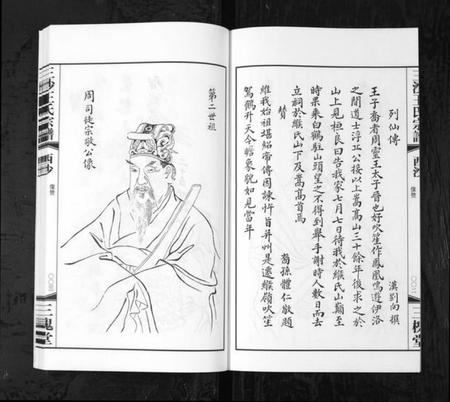 列仙傳
漢劉向撰
王子喬者周靈王太子晉也好吹笙作鳳凰鳴遊伊洛
之間道士浮丘公接以上嵩高山三十餘年後求之於
山上見桓良曰告我家七月七日待我於緱氏山巔至
時果乘白鶴駐山頭望之不得到舉手謝時人數日而去
立祠於緱氏山下及嵩高首焉
贊
裔孫體仁敬題
維我始祖堪紹帝傳因諫忤旨并州是遷緱嶺吹笙
駕鶴升天今瞻象貌如見當年
三沙王氏宗譜
西沙
像贊
三槐堂
第二世祖
周司徒宗敬公像
三沙王氏宗譜
西沙
像贊
三槐堂